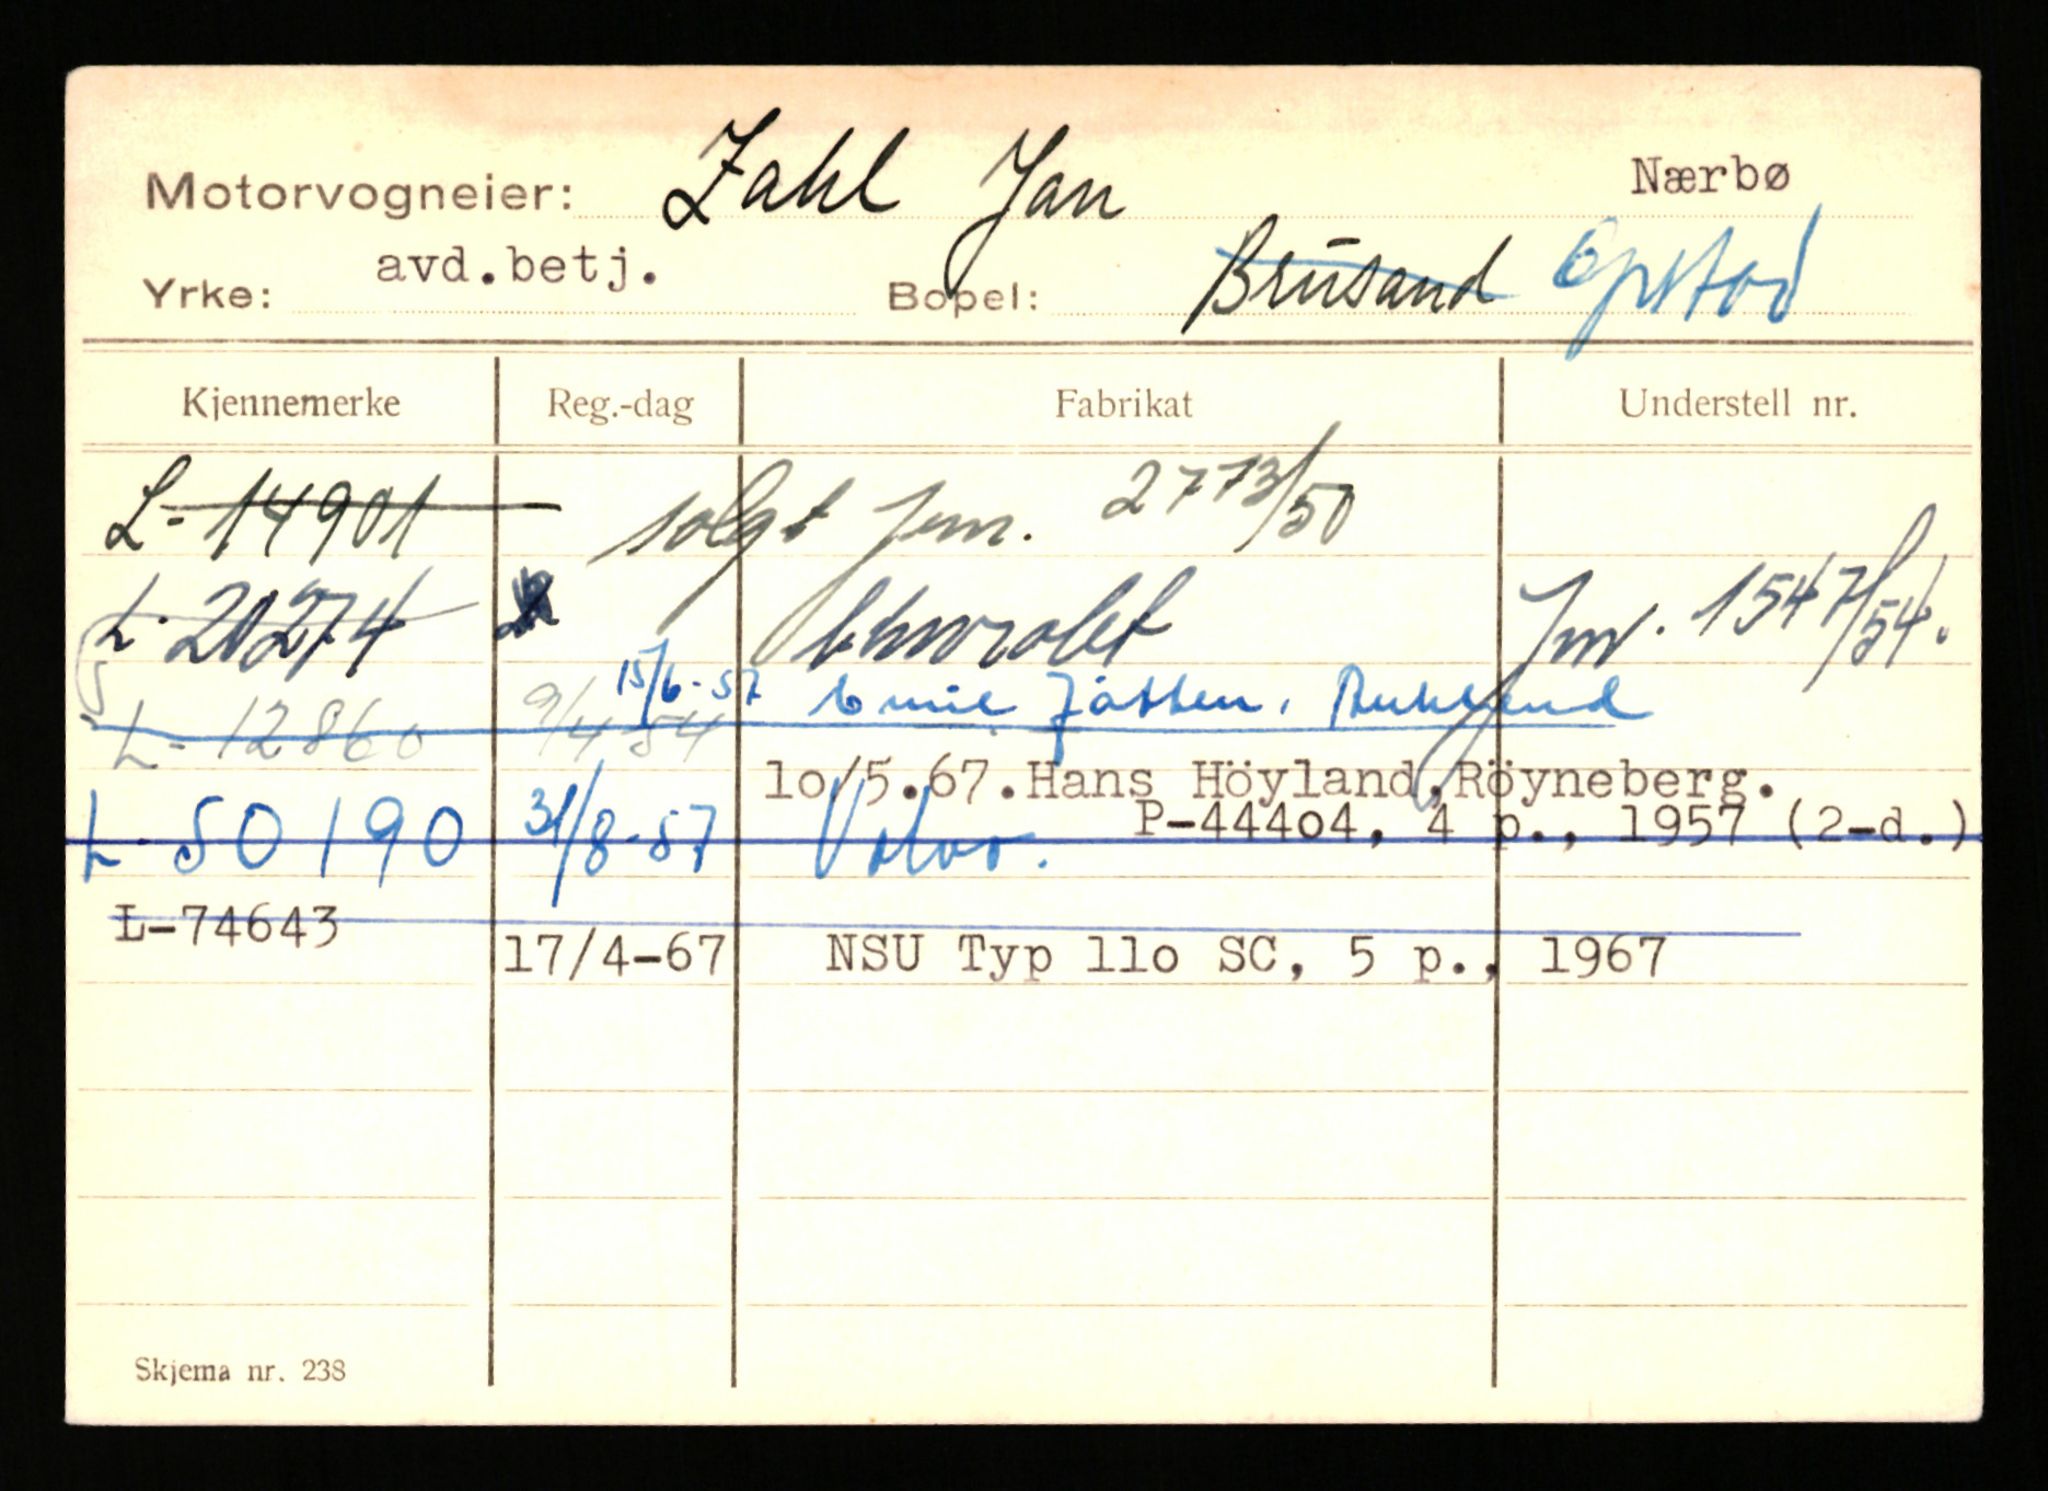 Motorvogneier: Zahl Jan Nærbø
Yrke: avd.betj. Bopel: Brusand Opstad
Kjennemerke Reg.-dag Fabrikat Understell nr.
L-14901 solgt Jnr. 2773/50
L-20274 Chevrolet Jnr. 1547/54.
15/6-57 Emil Jåtten,
L-12860 9/4 54
10/5.67.Hans Höyland,Röyneberg.
P-44404, 4 p., 1957 (2-d.)
L-50190 31/8-57 Volvo.
L-74643
17/4-67 NSU Typ 110 SC, 5 p., 1967
Skjema nr. 238